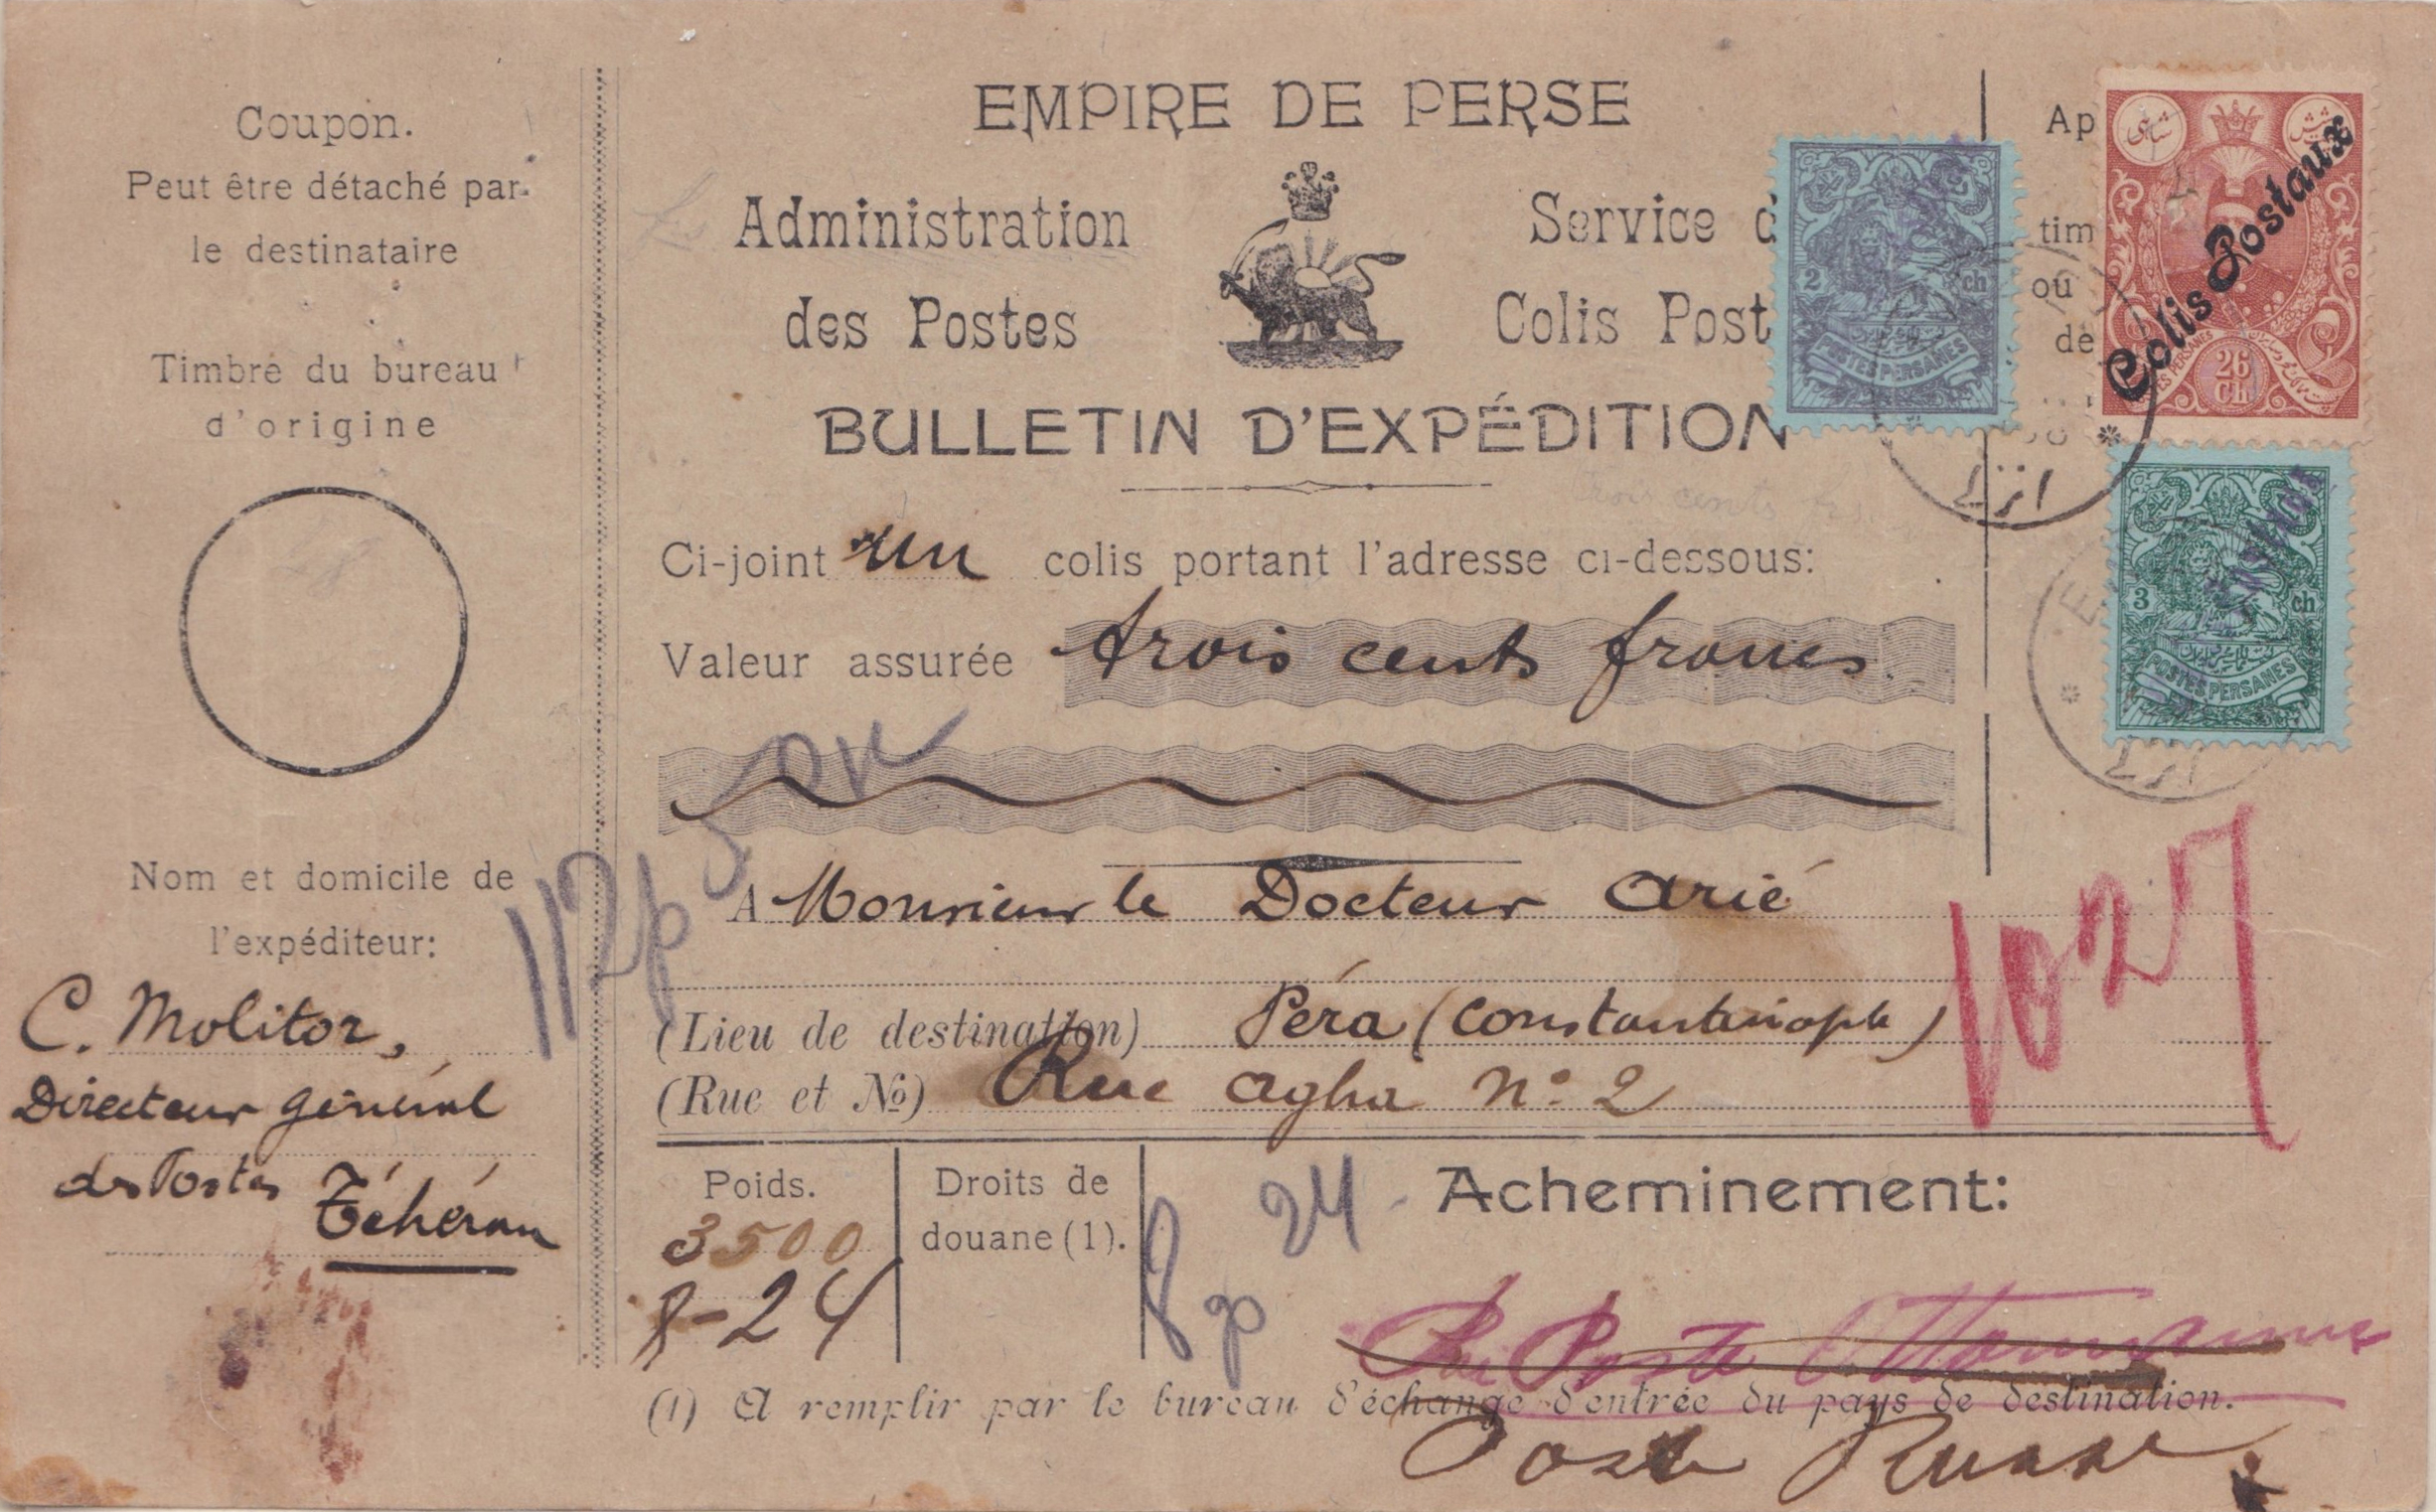 Coupon.
Peut être détaché par
le destinataire
Timbre du bureau
d'origine
Nom et domicile de
l'expéditeur:
C. Molitor,
Directeur général
des Postes
Téhéran
EMPIRE DE PERSE
Administration
des Postes
Service d
Colis Post
BULLETIN D'EXPÉDITION
Ci-joint un colis portant l'adresse ci-dessous:
Valeur assurée trois cents francs
A Monsieur le Docteur Arié
(Lieu de destination) Péra (Constantinople)
(Rue et No) Rue Agha No 2
Poids.
3500
8-24
Droits de
douane (1).
Acheminement:
Par Poste Ottomane
Poste Russe
(1) A remplir par le bureau d'échange d'entrée du pays de destination.
Ap
tim
ou
de
2 ch
POSTES PERSANES
شاهی
شش
Colis Postaux
26
Ch
3 ch
POSTES PERSANES
انزلی
انزلی
112p
24
8p
1027